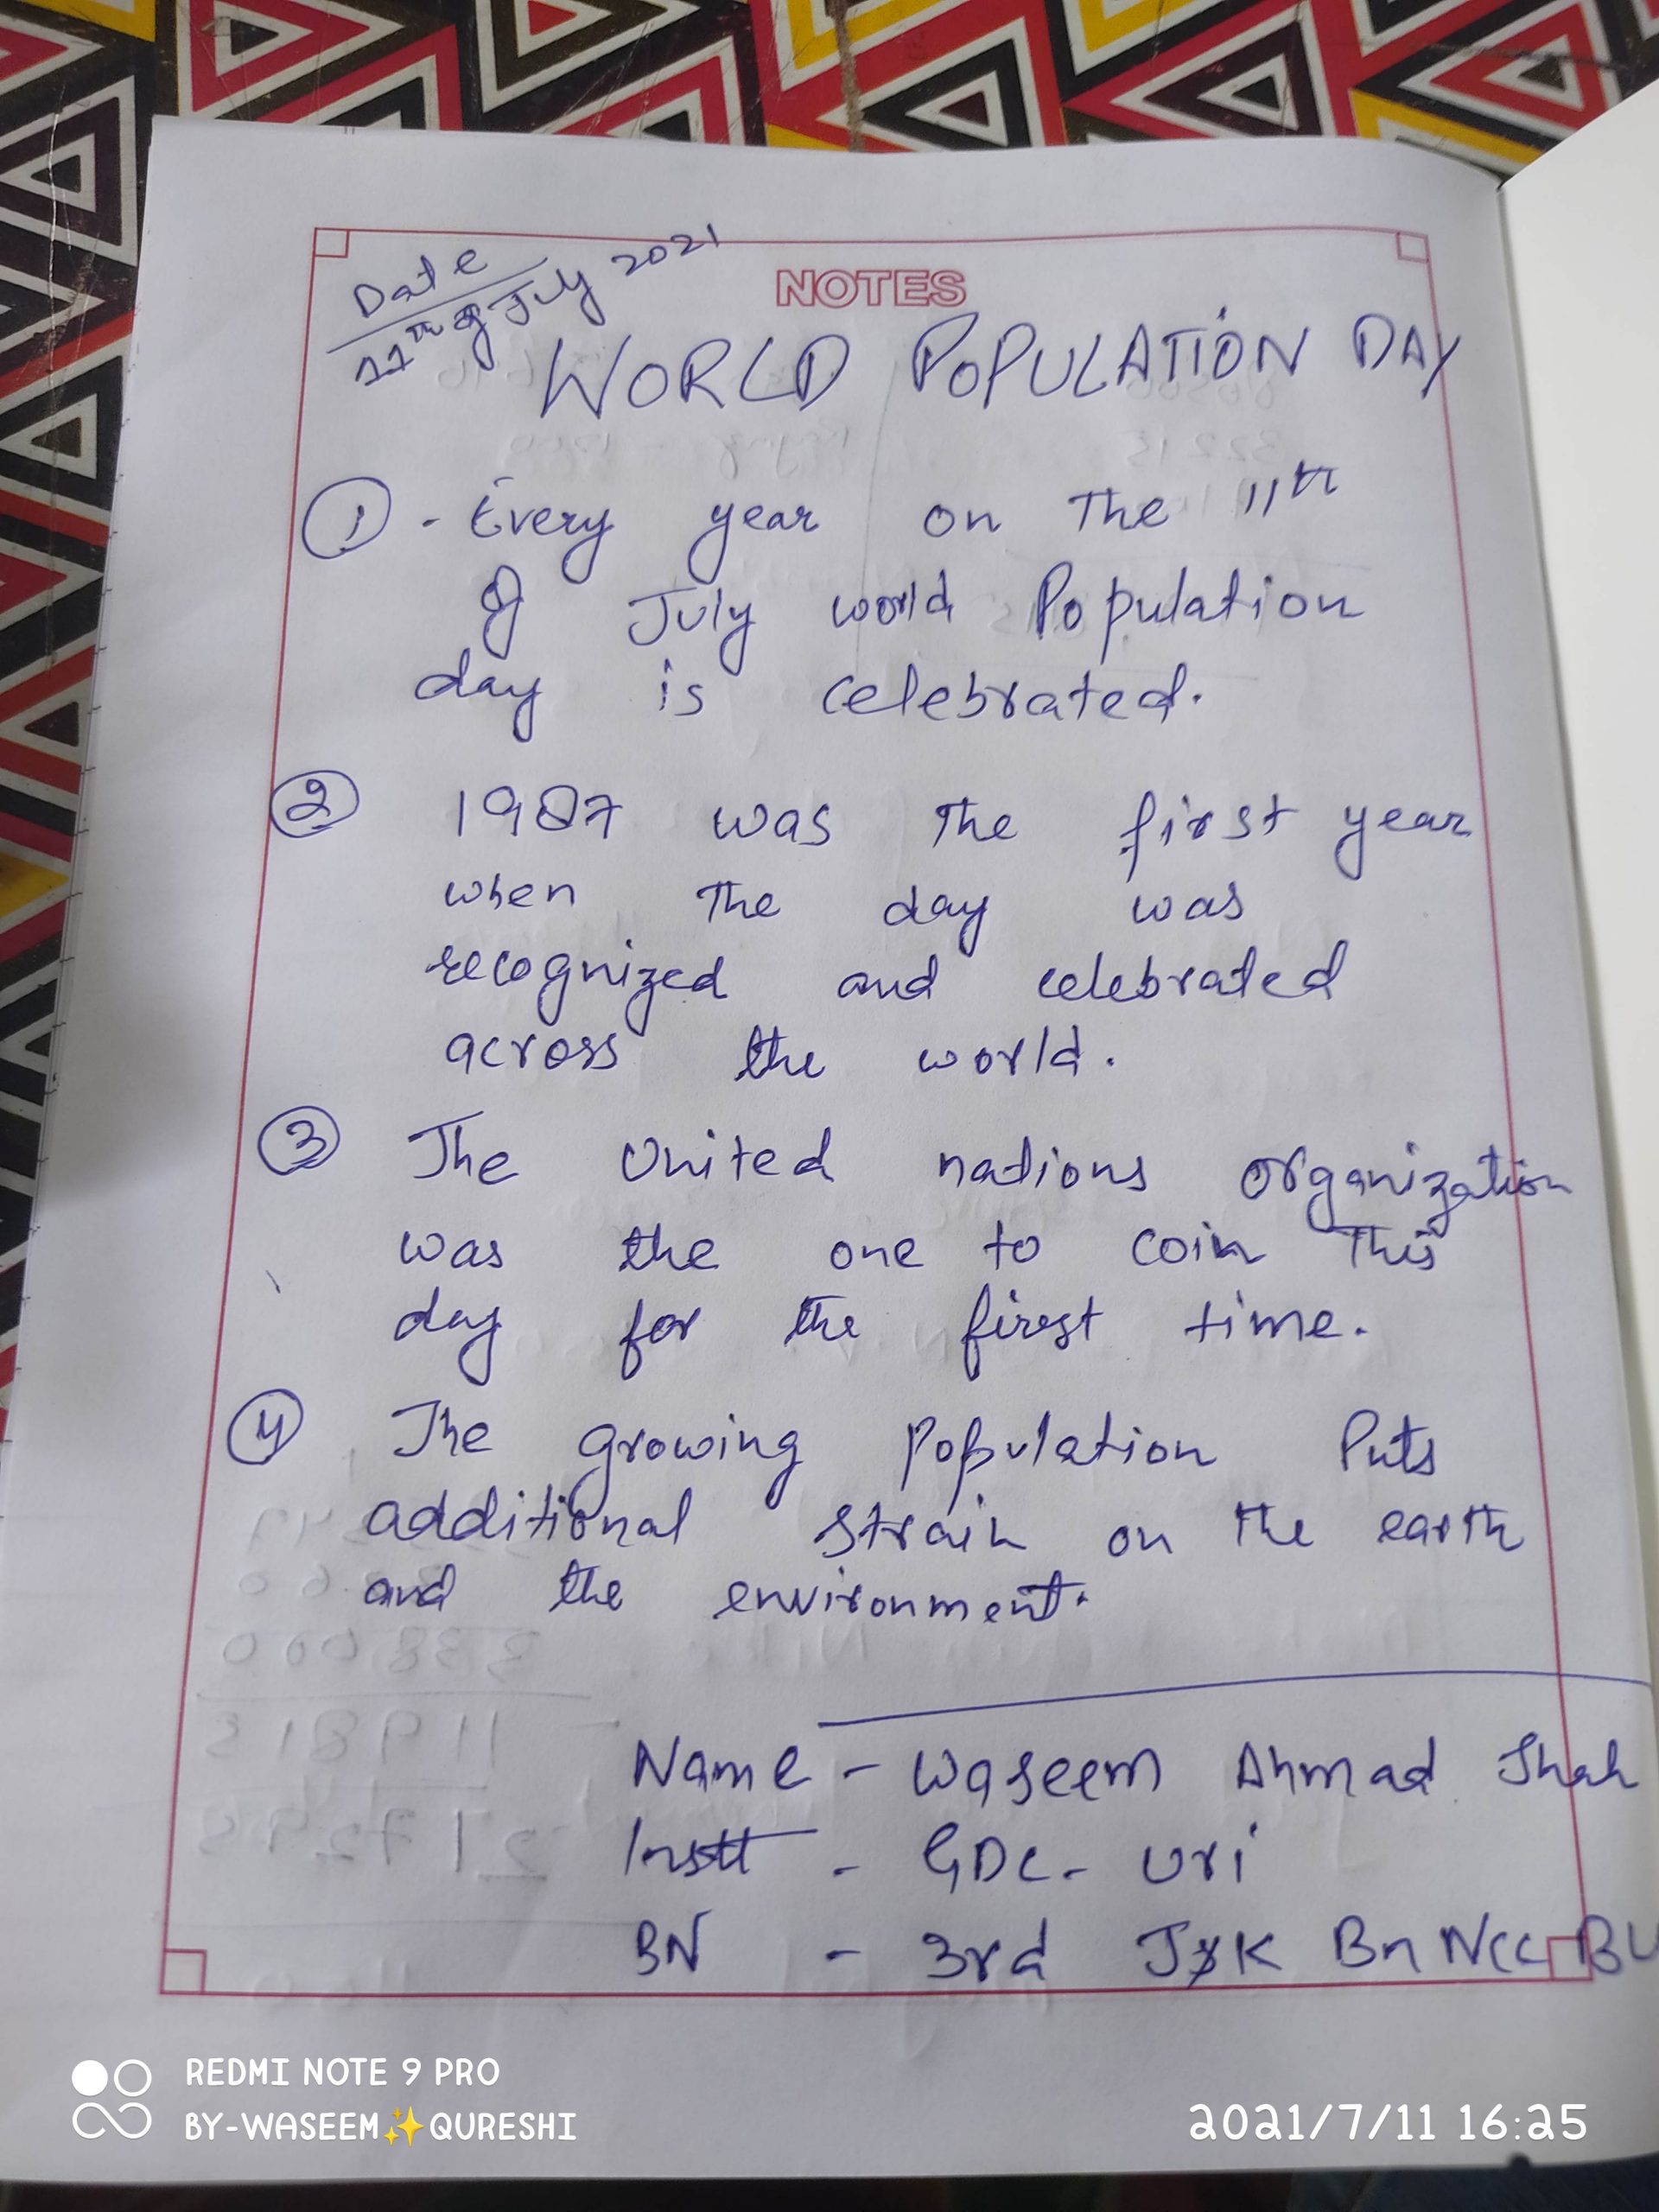 Date
11th of July 2021
NOTES
WORLD POPULATION DAY
1 - Every year on The 11th
of July world Population
day is celebrated.
2 1987 was the first year
when The day was
recognized and celebrated
across the world.
3 The United nations organization
was the one to coin This
day for the first time.
4 The growing Population Puts
additional strain on the earth
and the environment.
Name - Waseem Ahmad Shah
Instt - GDC - Uri
BN - 3rd J&K Bn NCC B
REDMI NOTE 9 PRO
BY-WASEEM✨QURESHI
2021/7/11 16:25